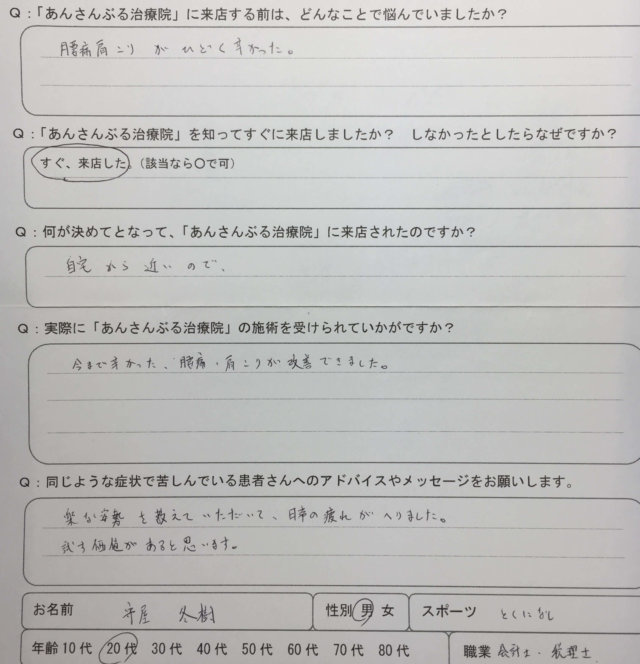 Q：「あんさんぶる治療院」に来店する前は、どんなことで悩んでいましたか？
腰痛肩こりがひどく辛かった。
Q：「あんさんぶる治療院」を知ってすぐに来店しましたか？　しなかったとしたらなぜですか？
すぐ、来店した。（該当なら〇で可）
Q：何が決めてとなって、「あんさんぶる治療院」に来店されたのですか？
自宅から近いので、
Q：実際に「あんさんぶる治療院」の施術を受けられていかがですか？
今まで辛かった、腰痛・肩こりが改善できました。
Q：同じような症状で苦しんでいる患者さんへのアドバイスやメッセージをお願いします。
楽な姿勢を教えていただいて、日々の疲れがへりました。
試す価値があると思います。
お名前　守屋　冬樹　性別 男 女　スポーツ　とくになし
年齢 10代　20代　30代　40代　50代　60代　70代　80代　職業 会計士・税理士